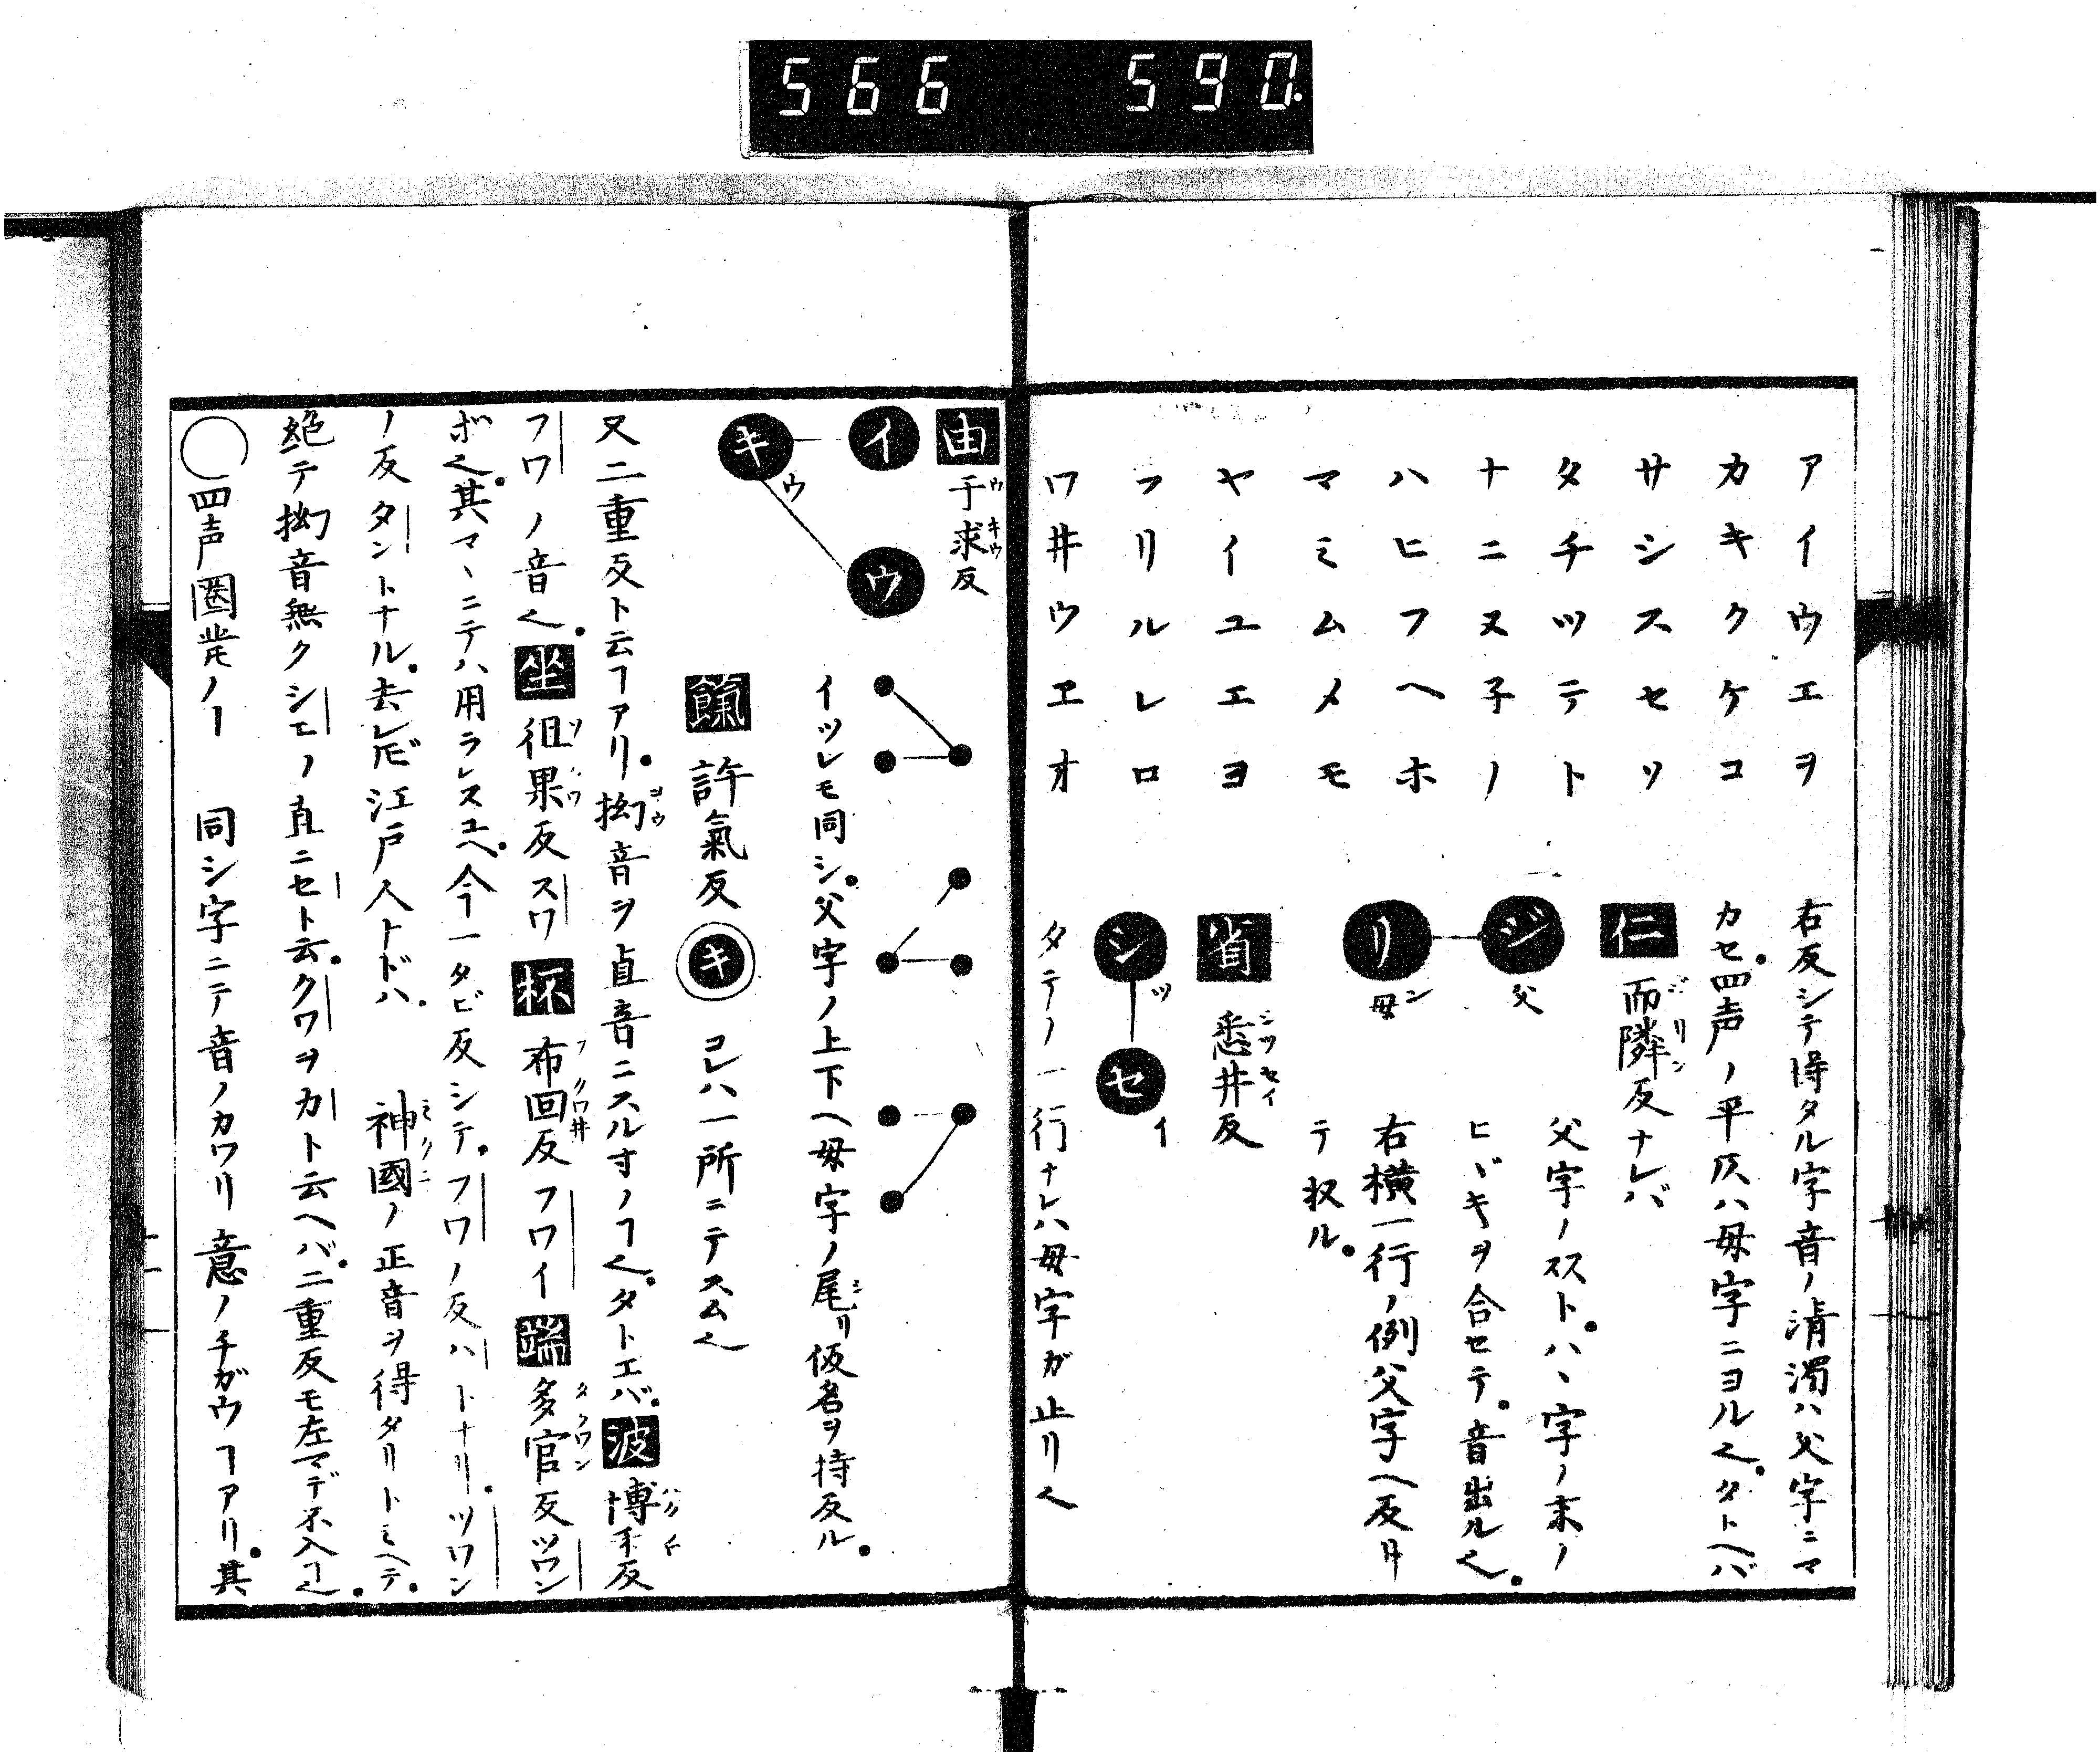 566 590.
アイウエヲ
カキクケコ
サシスセソ
タチツテト
ナニヌ子ノ
ハヒフヘホ
マミムメモ
ヤイユエヨ
ラリルレロ
ワ井ウヱオ
右反シテ得タル字音ノ清濁ハ父字ニマ
カセ。四声ノ平仄ハ母字ニヨル也。タトヘバ
仁 而隣反ナレバ
ジ 父
リ ン 母
父字ノヌスト。ハヽ字ノ末ノ
ヒヾキヲ合セテ。音出ル也。
右横一行ノ例父字ヘ反リ
テ収ル。
省 悉井反
シ ツ セ イ
タテノ一行ナレハ母字ガ止リ也
由 于求反
イ ウ
キ ウ
イツレモ同シ。父字ノ上下ヘ母字ノ尾リ仮名ヲ持反ル。
餼 許氣反 キ コレハ一所ニテスム也
又二重反ト云ヿアリ。拗音ヲ直音ニスル寸ノヿ也。タトエバ。波 博禾反
フワノ音也。坐 徂果反スワ 杯 布回反フワイ 端 多官反ツワン
ボ也。其マヽニテハ用ラレヌユヘ。今一タビ反シテ。フワノ反ハトナリ。ツワン
ノ反タントナル。去レ𪜈江戸人トドハ。 神國ノ正音ヲ得タリトミヘテ。
絶テ拗音無クシエノ直ニセト云。クワヲカト云ヘバ。二重反モ左マデ不入ヿ也。
○四声圏発ノヿ 同シ字ニテ音ノカワリ意ノチガウヿアリ。其